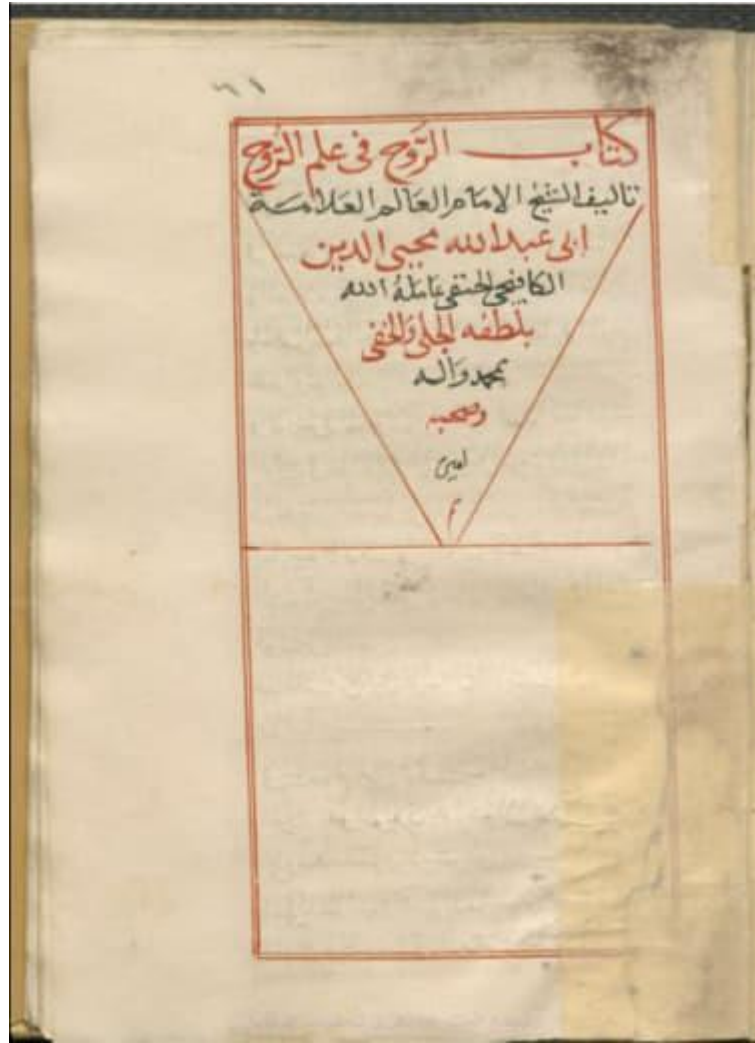 ٦١
كتاب الرَّوح في علم الرُّوح
تاليف الشيخ الامام العالم العلامة
ابي عبد الله محيي الدين
الكافيجي الحنفي عامله الله
بلطفه الجلي والخفي
بمحمد واله
وصحبه
امين
م